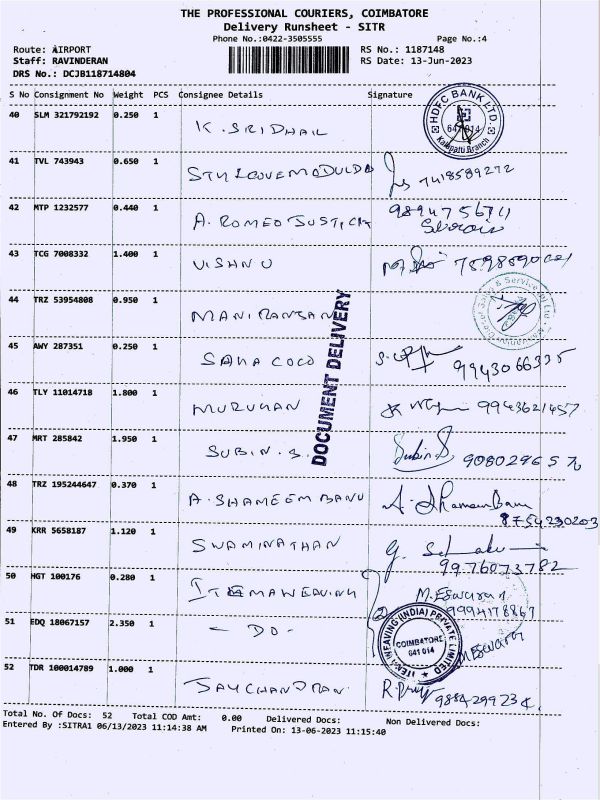 THE PROFESSIONAL COURIERS, COIMBATORE
Delivery Runsheet - SITR
Phone No.:0422-3505555 Page No.:4
Route: AIRPORT RS No.: 1187148
Staff: RAVINDERAN RS Date: 13-Jun-2023
DRS No.: DCJB118714804
S No Consignment No Weight PCS Consignee Details Signature
40 SLM 321792192 0.250 1 K. SRIDHAR
HDFC BANK LTD.
641 014
Kalapatti Branch
41 TVL 743943 0.650 1 7418589272
42 MTP 1232577 0.440 1 A. ROMEO JUSTICK 9894756711
43 TCG 7008332 1.400 1 VISHNU
44 TRZ 53954808 0.950 1 MANI RANJAN
& Service
DOCUMENT DELIVERY
45 AWY 287351 0.250 1 SANA COCO 9943066335
46 TLY 11014718 1.800 1 MURUGAN 9943621457
47 MRT 285842 1.950 1 SUBIN. S. Subin S
48 TRZ 195244647 0.370 1 A. SHAMEEM BANU
8754230203
49 KRR 5658187 1.120 1 SWAMINATHAN
9976073782
50 HGT 100176 0.280 1 ITEMA WEAVING M. Eswaran
9994178867
51 EDQ 18067157 2.350 1 - DO - M Eswaran
ITEMA WEAVING (INDIA) PRIVATE LIMITED
COIMBATORE
641 014
52 TDR 100014789 1.000 1 JAYCHANDRAN
9884299234.
Total No. Of Docs: 52 Total COD Amt: 0.00 Delivered Docs: Non Delivered Docs:
Entered By :SITRA1 06/13/2023 11:14:38 AM Printed On: 13-06-2023 11:15:40